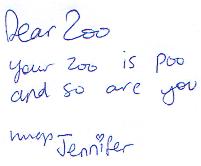 Dear Zoo
your zoo is poo
and so are you
Jennifer